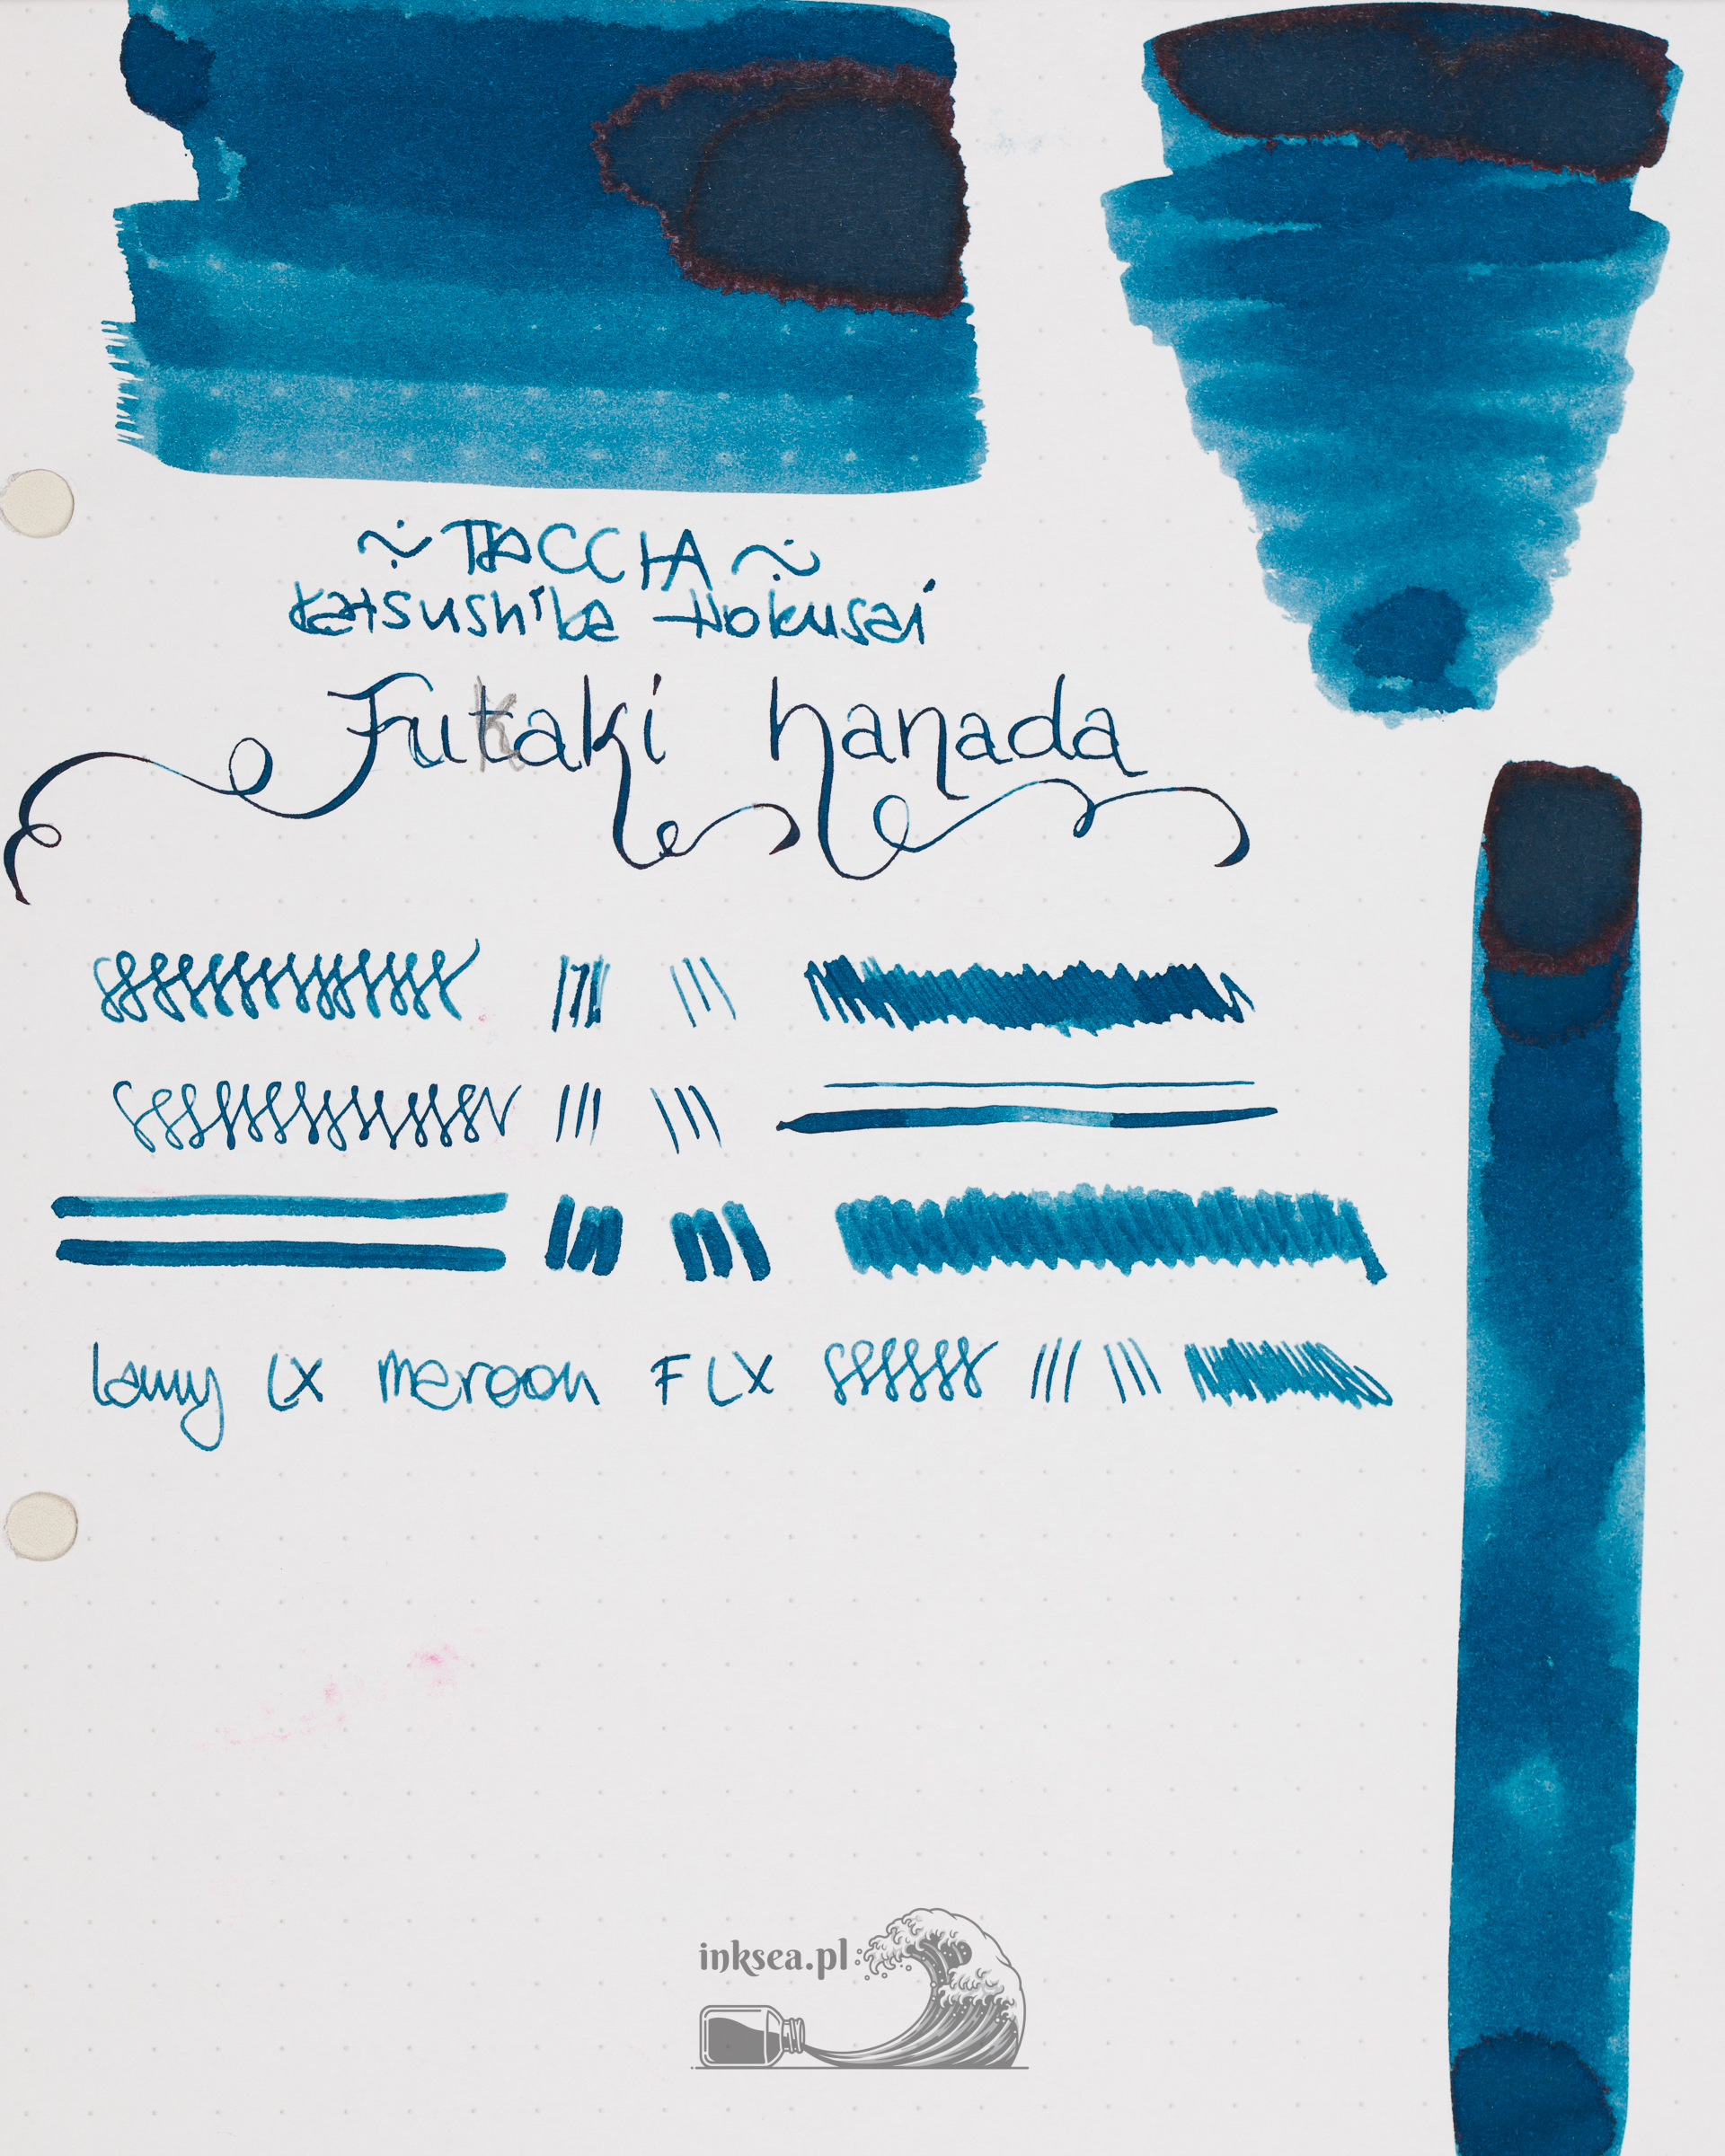 ~ TACCIA ~
Katsushika Hokusai
Futaki hanada
Lamy LX maroon F LX
inksea.pl